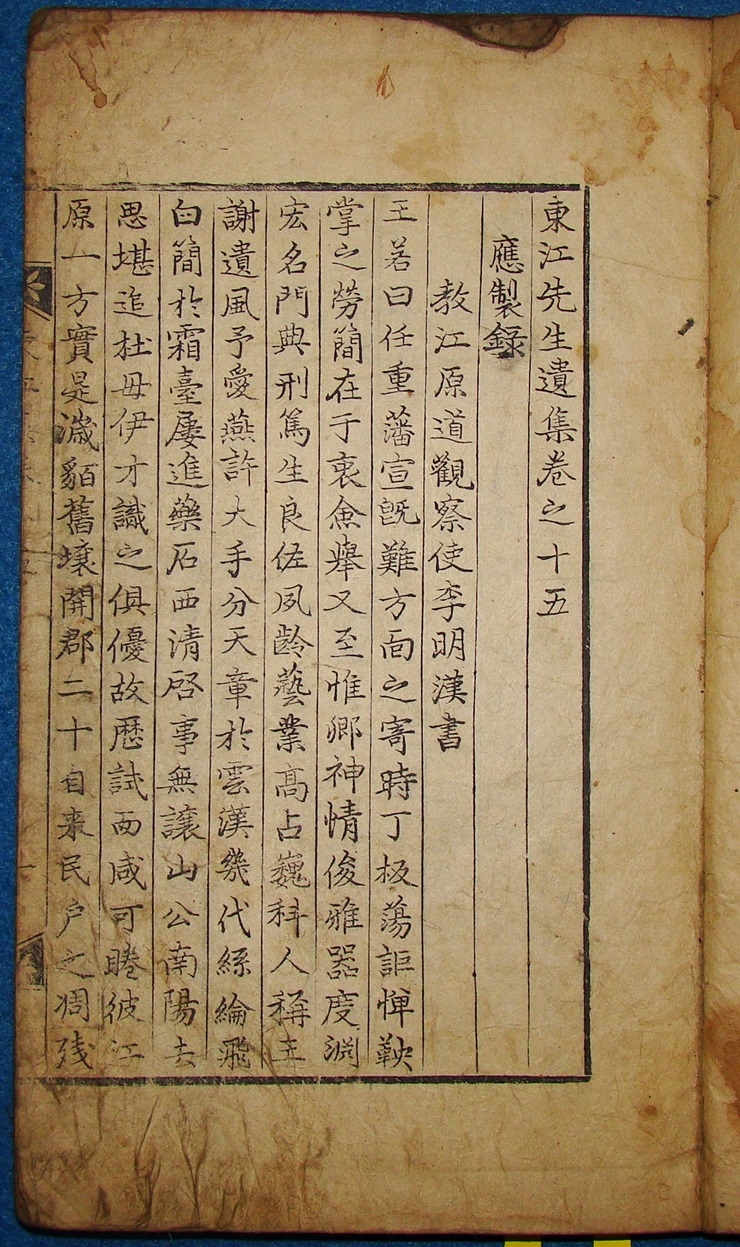 東江先生遺集卷之十五
應製錄
教江原道觀察使李明漢書
王若曰任重藩宣旣難方面之寄時丁板蕩詎憚鞅
掌之勞簡在于衷僉擧又至惟卿神情俊雅器度淵
宏名門典刑篤生良佐夙齡藝業高占巍科人稱王
謝遺風予愛燕許大手分天章於雲漢幾代絲綸飛
白簡於霜臺屢進藥石西清啓事無讓山公南陽去
思堪追杜母伊才識之俱優故歷試而咸可睠彼江
原一方實是濊貊舊壤開郡二十自來民戶之凋殘